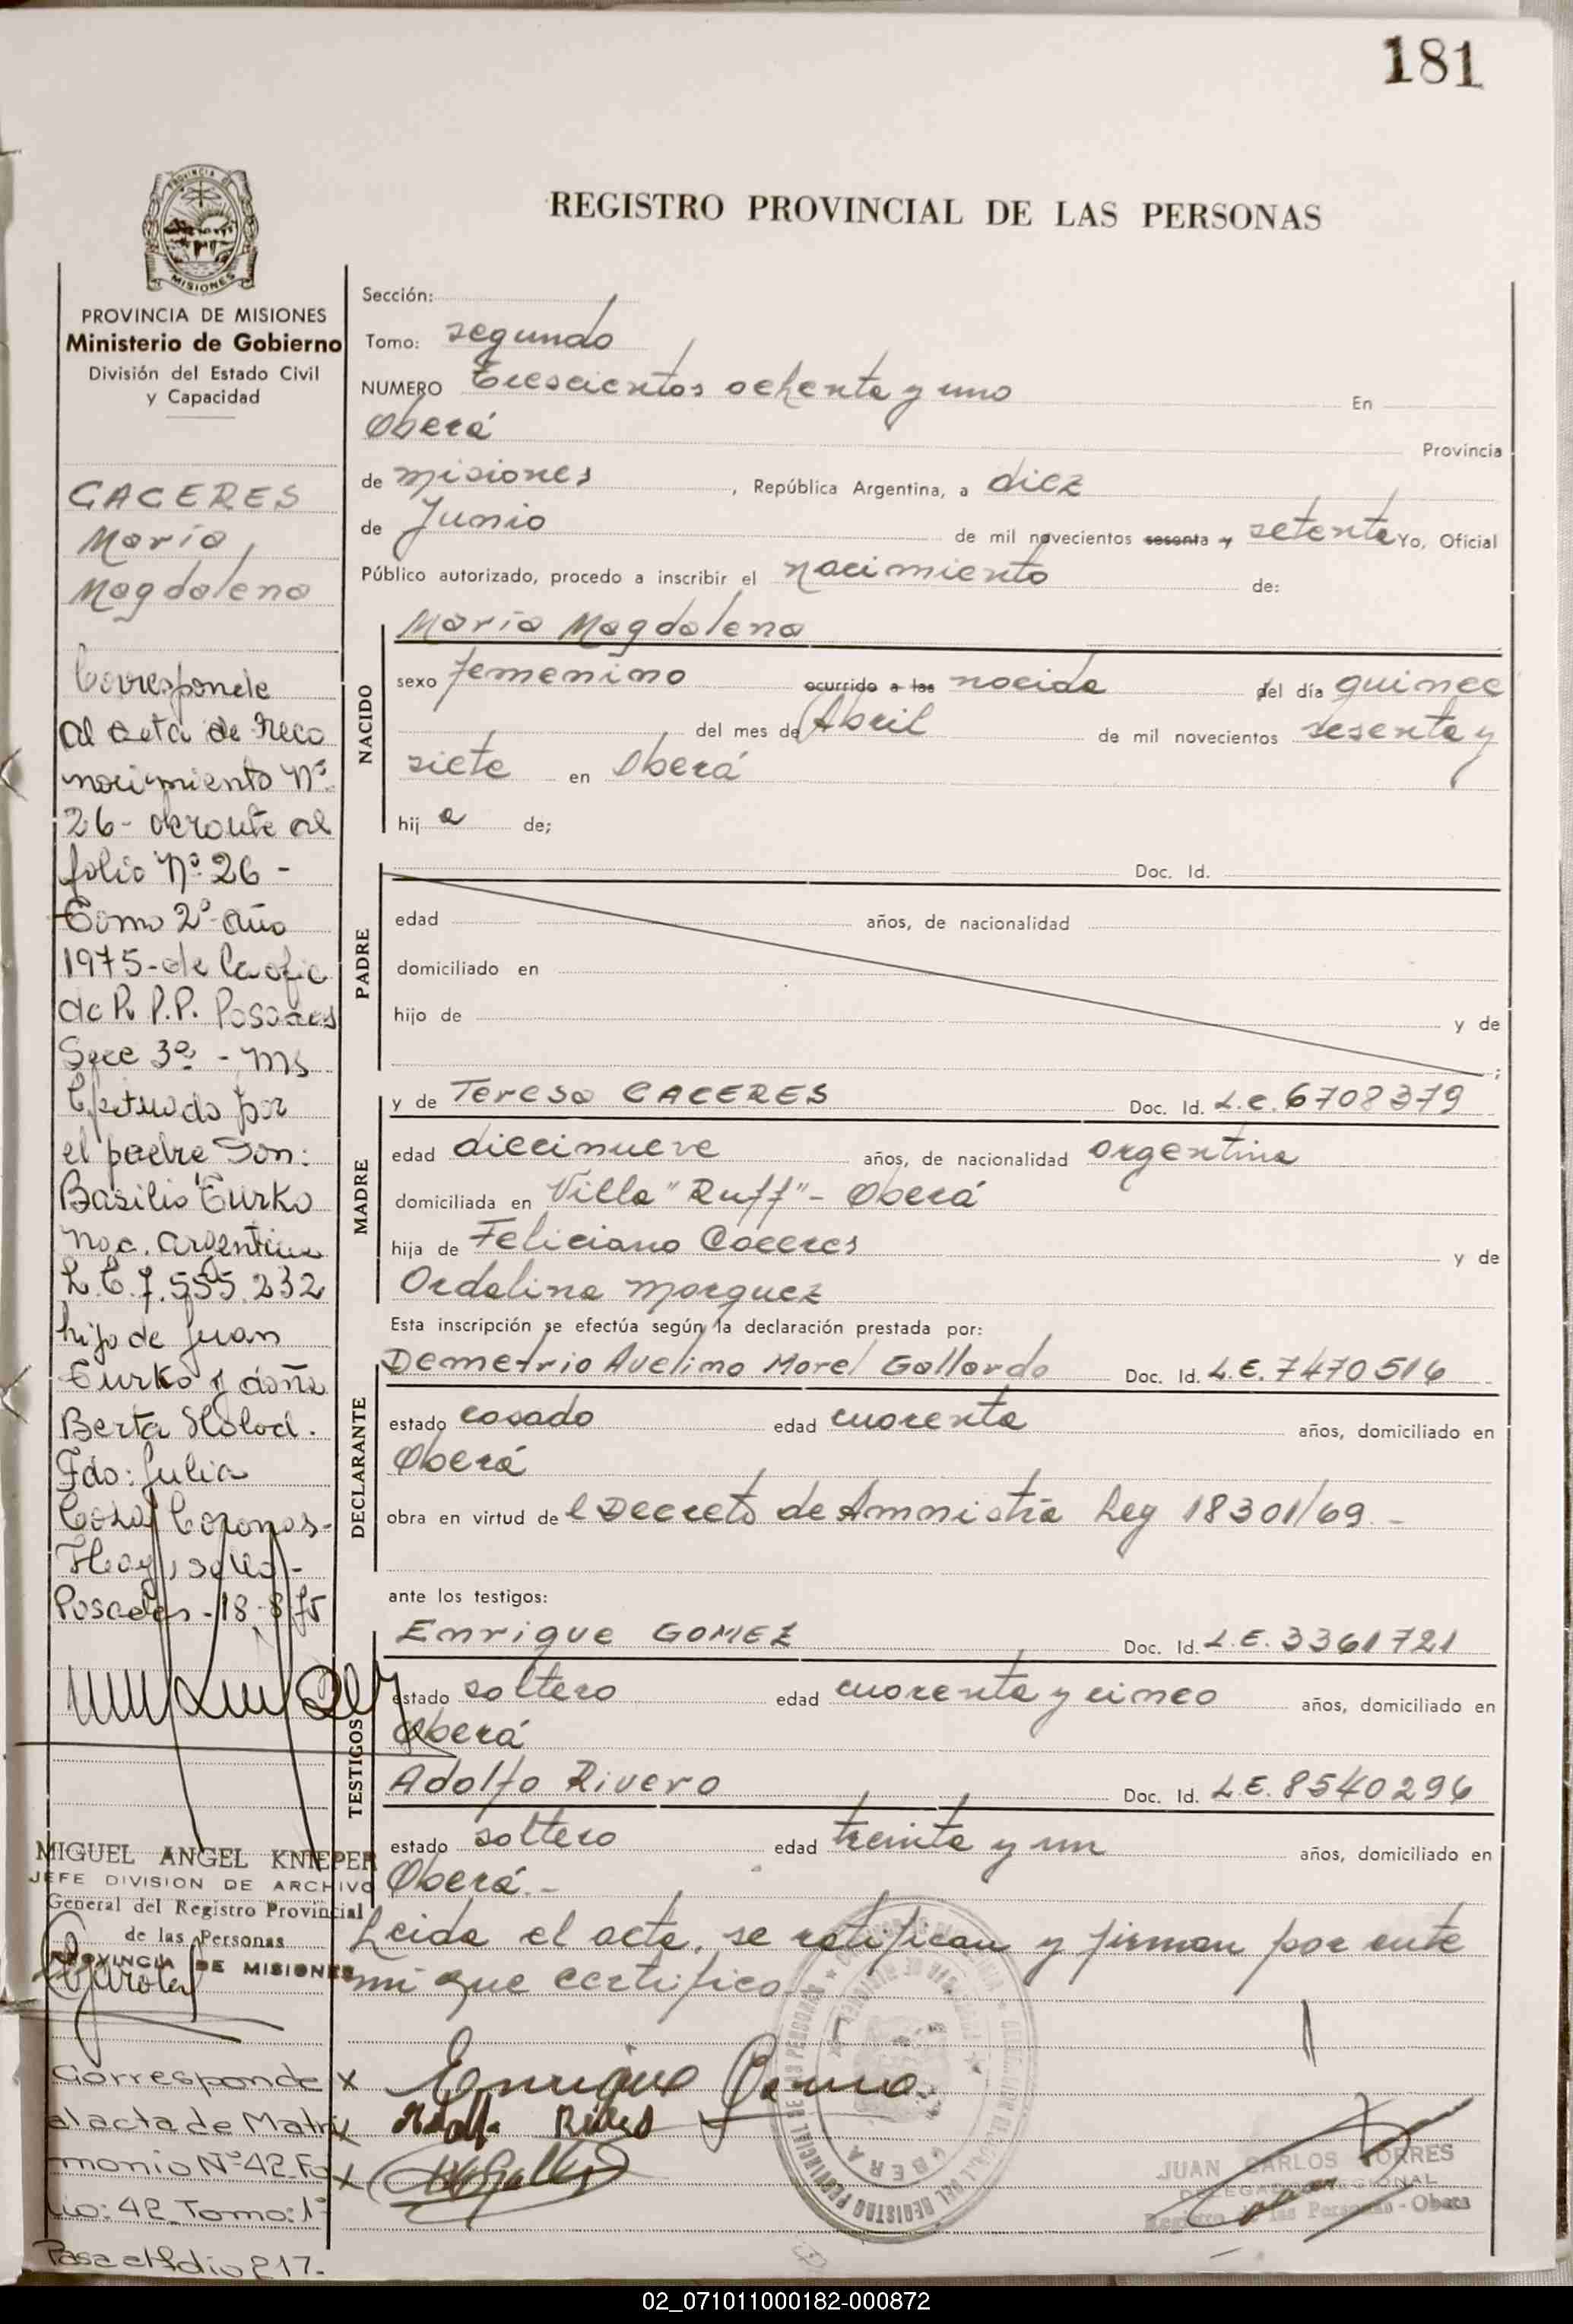 181
PROVINCIA DE
MISIONES
PROVINCIA DE MISIONES
Ministerio de Gobierno
División del Estado Civil
y Capacidad
CACERES
María,
Magdalena
Corresponde
al acta de Reco
nocimiento Nº
26- obrante al
folio Nº 26 -
Tomo 2º Año
1975- de la ofic
de R P.P. Posadas
Secc 3ª - Ms
Efectuado por
el padre Don:
Basilio Turko
nac. argentina
L.E. 7.555.232
hijo de Juan
Turko y doña
Berta Holod.
Fdo: Julia
Hay sello -
Posadas - 18-8-75
MIGUEL ANGEL KNIEPER
JEFE DIVISION DE ARCHIVO
General del Registro Provincial
de las Personas
PROVINCIA DE MISIONES
Corresponde
al acta de Matri
monio Nº 42 Fo
lio: 42 Tomo: 1º
Pasa al folio 217.-
REGISTRO PROVINCIAL DE LAS PERSONAS
Sección:
Tomo: segundo
NUMERO Trescientos ochenta y uno En
Oberá Provincia
de Misiones , República Argentina, a diez
de Junio de mil novecientos sesenta y setenta Yo, Oficial
Público autorizado, procedo a inscribir el nacimiento de:
NACIDO
María Magdalena
sexo femenino ocurrido a las nacida del día quince
del mes de Abril de mil novecientos sesenta y
siete en Oberá
hij a de;
PADRE
Doc. Id.
edad años, de nacionalidad
domiciliado en
hijo de y de
;
MADRE
y de Teresa CACERES Doc. Id. L.C. 6708379
edad diecinueve años, de nacionalidad argentina
domiciliada en Villa "Ruff" - Oberá
hija de Feliciano Caceres y de
Ordalina Marquez
Esta inscripción se efectúa según la declaración prestada por:
DECLARANTE
Demetrio Avelino Morel Gallardo Doc. Id. L.E. 7470516
estado casado edad cuarenta años, domiciliado en
Oberá
obra en virtud de l Decreto de Amnistía Ley 18301/69.-
ante los testigos:
TESTIGOS
Enrique GOMEZ Doc. Id. L.E. 3361721
estado soltero edad cuarenta y cinco años, domiciliado en
Oberá
Adolfo Rivero Doc. Id. L.E. 8540296
estado soltero edad treinta y un años, domiciliado en
Oberá.-
Leida el acta, se ratifican y firman por ante
mi que certifico
x Enrique
x
x
OBERA
JUAN CARLOS TORRES
DELEGADO REGIONAL
Registro de las Personas - Obera
02_071011000182-000872